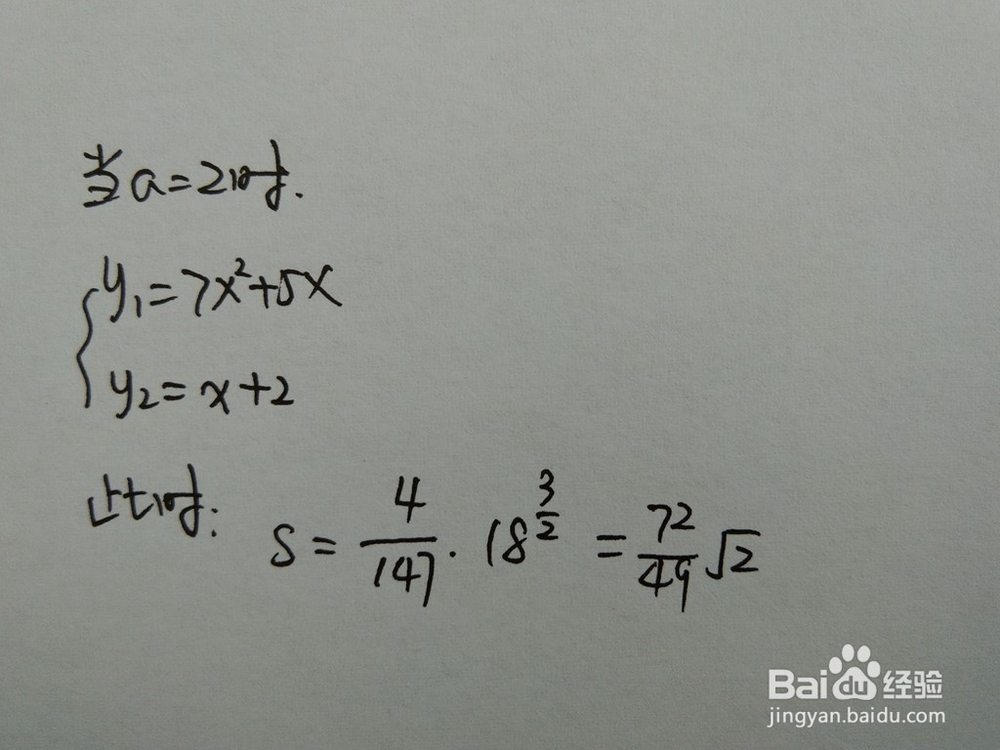 当a=2时.
y₁=7x²+5x
y₂=x+2
此时:
S=4/147·18^(3/2)=72/49√2
Baidu经验
jingyan.baidu.com